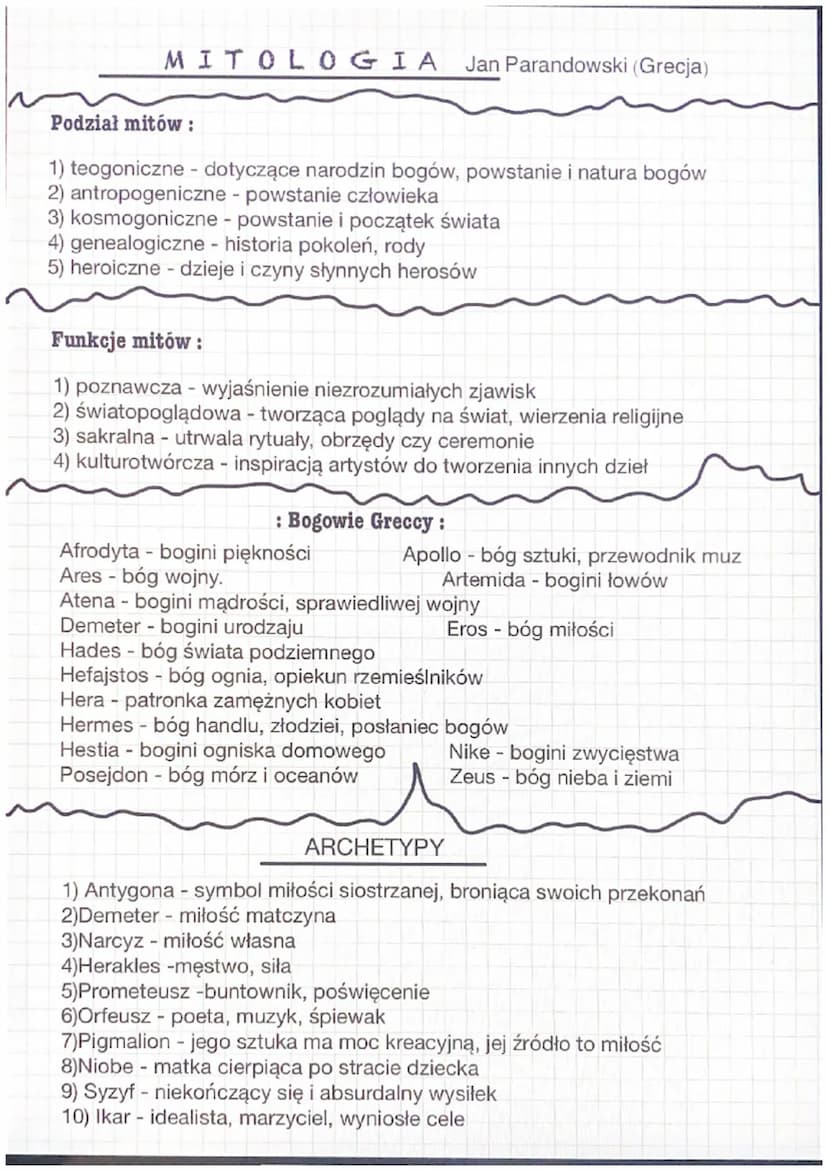 MITOLOGIA Jan Parandowski (Grecja)
Podział mitów :
1) teogoniczne - dotyczące narodzin bogów, powstanie i natura bogów
2) antropogeniczne - powstanie człowieka
3) kosmogoniczne - powstanie i początek świata
4) genealogiczne - historia pokoleń, rody
5) heroiczne - dzieje i czyny słynnych herosów
Funkcje mitów :
1) poznawcza - wyjaśnienie niezrozumiałych zjawisk
2) światopoglądowa - tworząca poglądy na świat, wierzenia religijne
3) sakralna - utrwala rytuały, obrzędy czy ceremonie
4) kulturotwórcza - inspiracją artystów do tworzenia innych dzieł
: Bogowie Greccy :
Afrodyta - bogini piękności Apollo - bóg sztuki, przewodnik muz
Ares - bóg wojny. Artemida - bogini łowów
Atena - bogini mądrości, sprawiedliwej wojny
Demeter - bogini urodzaju Eros - bóg miłości
Hades - bóg świata podziemnego
Hefajstos - bóg ognia, opiekun rzemieślników
Hera - patronka zamężnych kobiet
Hermes - bóg handlu, złodziei, posłaniec bogów
Hestia - bogini ogniska domowego Nike - bogini zwycięstwa
Posejdon - bóg mórz i oceanów Zeus - bóg nieba i ziemi
ARCHETYPY
1) Antygona - symbol miłości siostrzanej, broniąca swoich przekonań
2)Demeter - miłość matczyna
3)Narcyz - miłość własna
4)Herakles -męstwo, siła
5)Prometeusz -buntownik, poświęcenie
6)Orfeusz - poeta, muzyk, śpiewak
7)Pigmalion - jego sztuka ma moc kreacyjną, jej źródło to miłość
8)Niobe - matka cierpiąca po stracie dziecka
9) Syzyf - niekończący się i absurdalny wysiłek
10) Ikar - idealista, marzyciel, wyniosłe cele